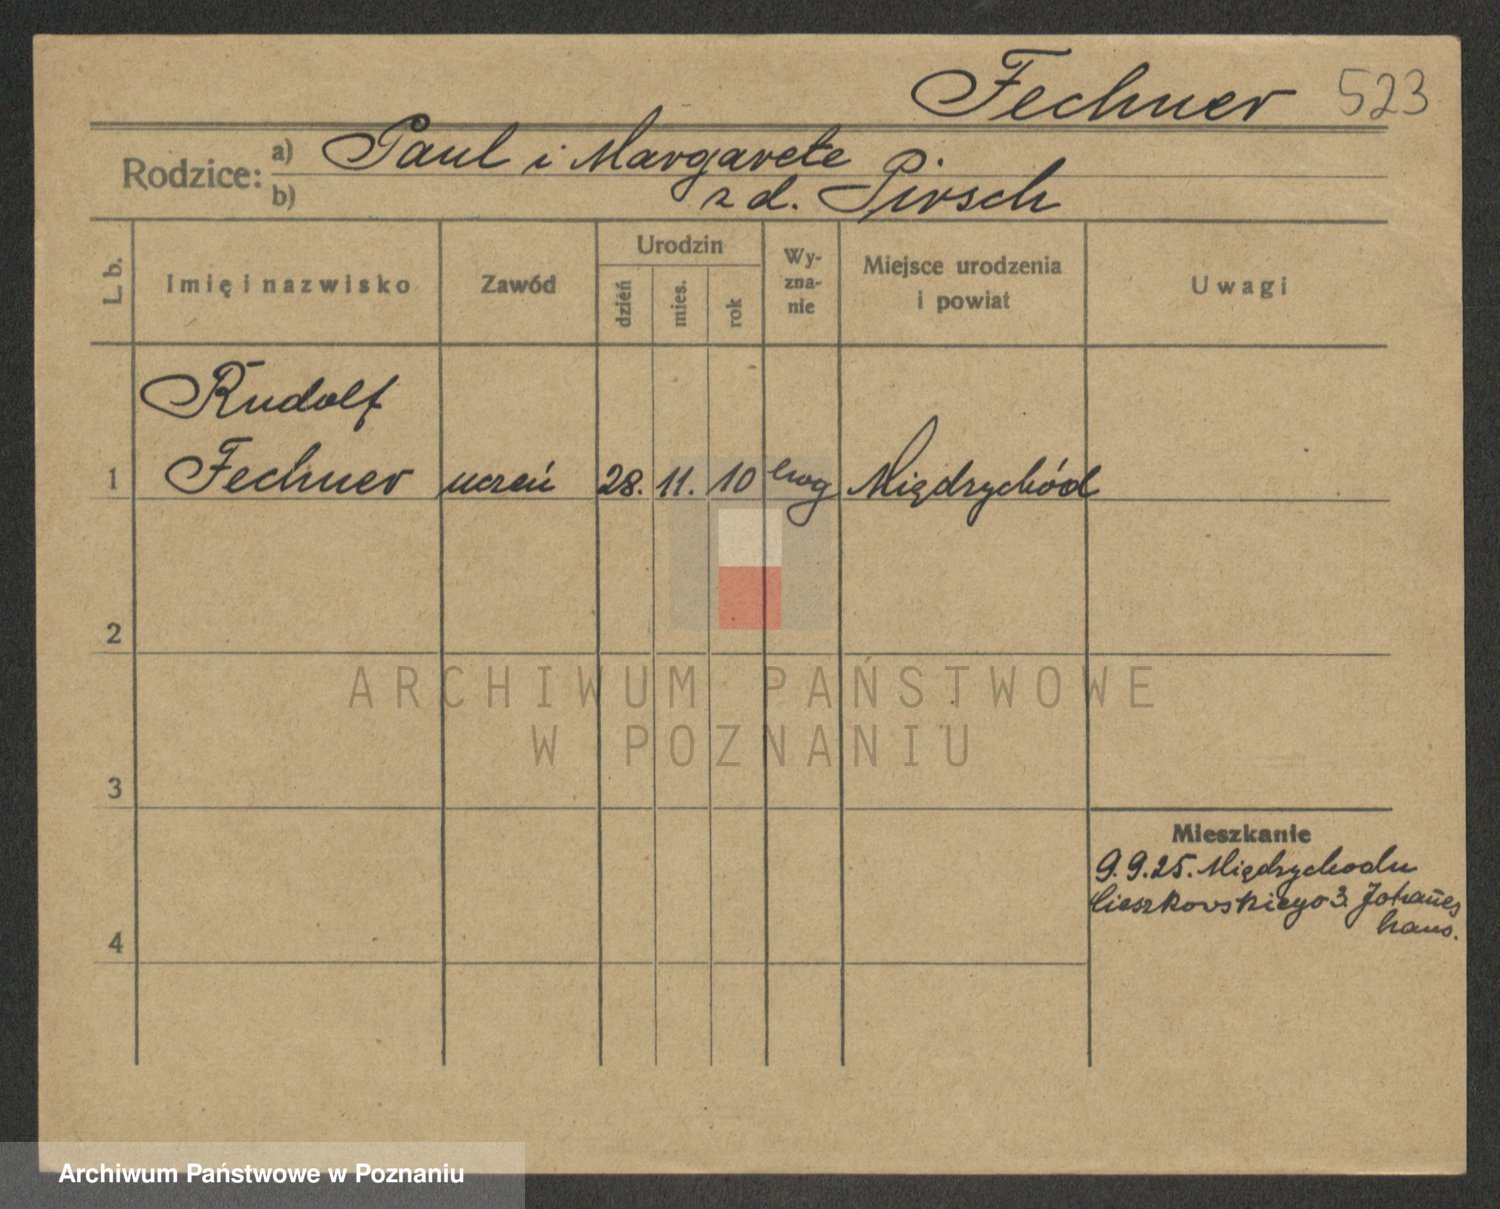 Fechner 523
Rodzice: a) Paul i Margarete
b) z d. Pirsch
L. b.
Imię i nazwisko
Zawód
Urodzin
dzień
mies.
rok
Wy-
zna-
nie
Miejsce urodzenia
i powiat
Uwagi
Rudolf
1 Fechner uczeń 28. 11. 10 ewg Międzychód
2
ARCHIWUM PAŃSTWOWE
W POZNANIU
3
Mieszkanie
9.9.25. Międzychodu
Cieszkowskiego 3. Johanes
4
Archiwum Państwowe w Poznaniu